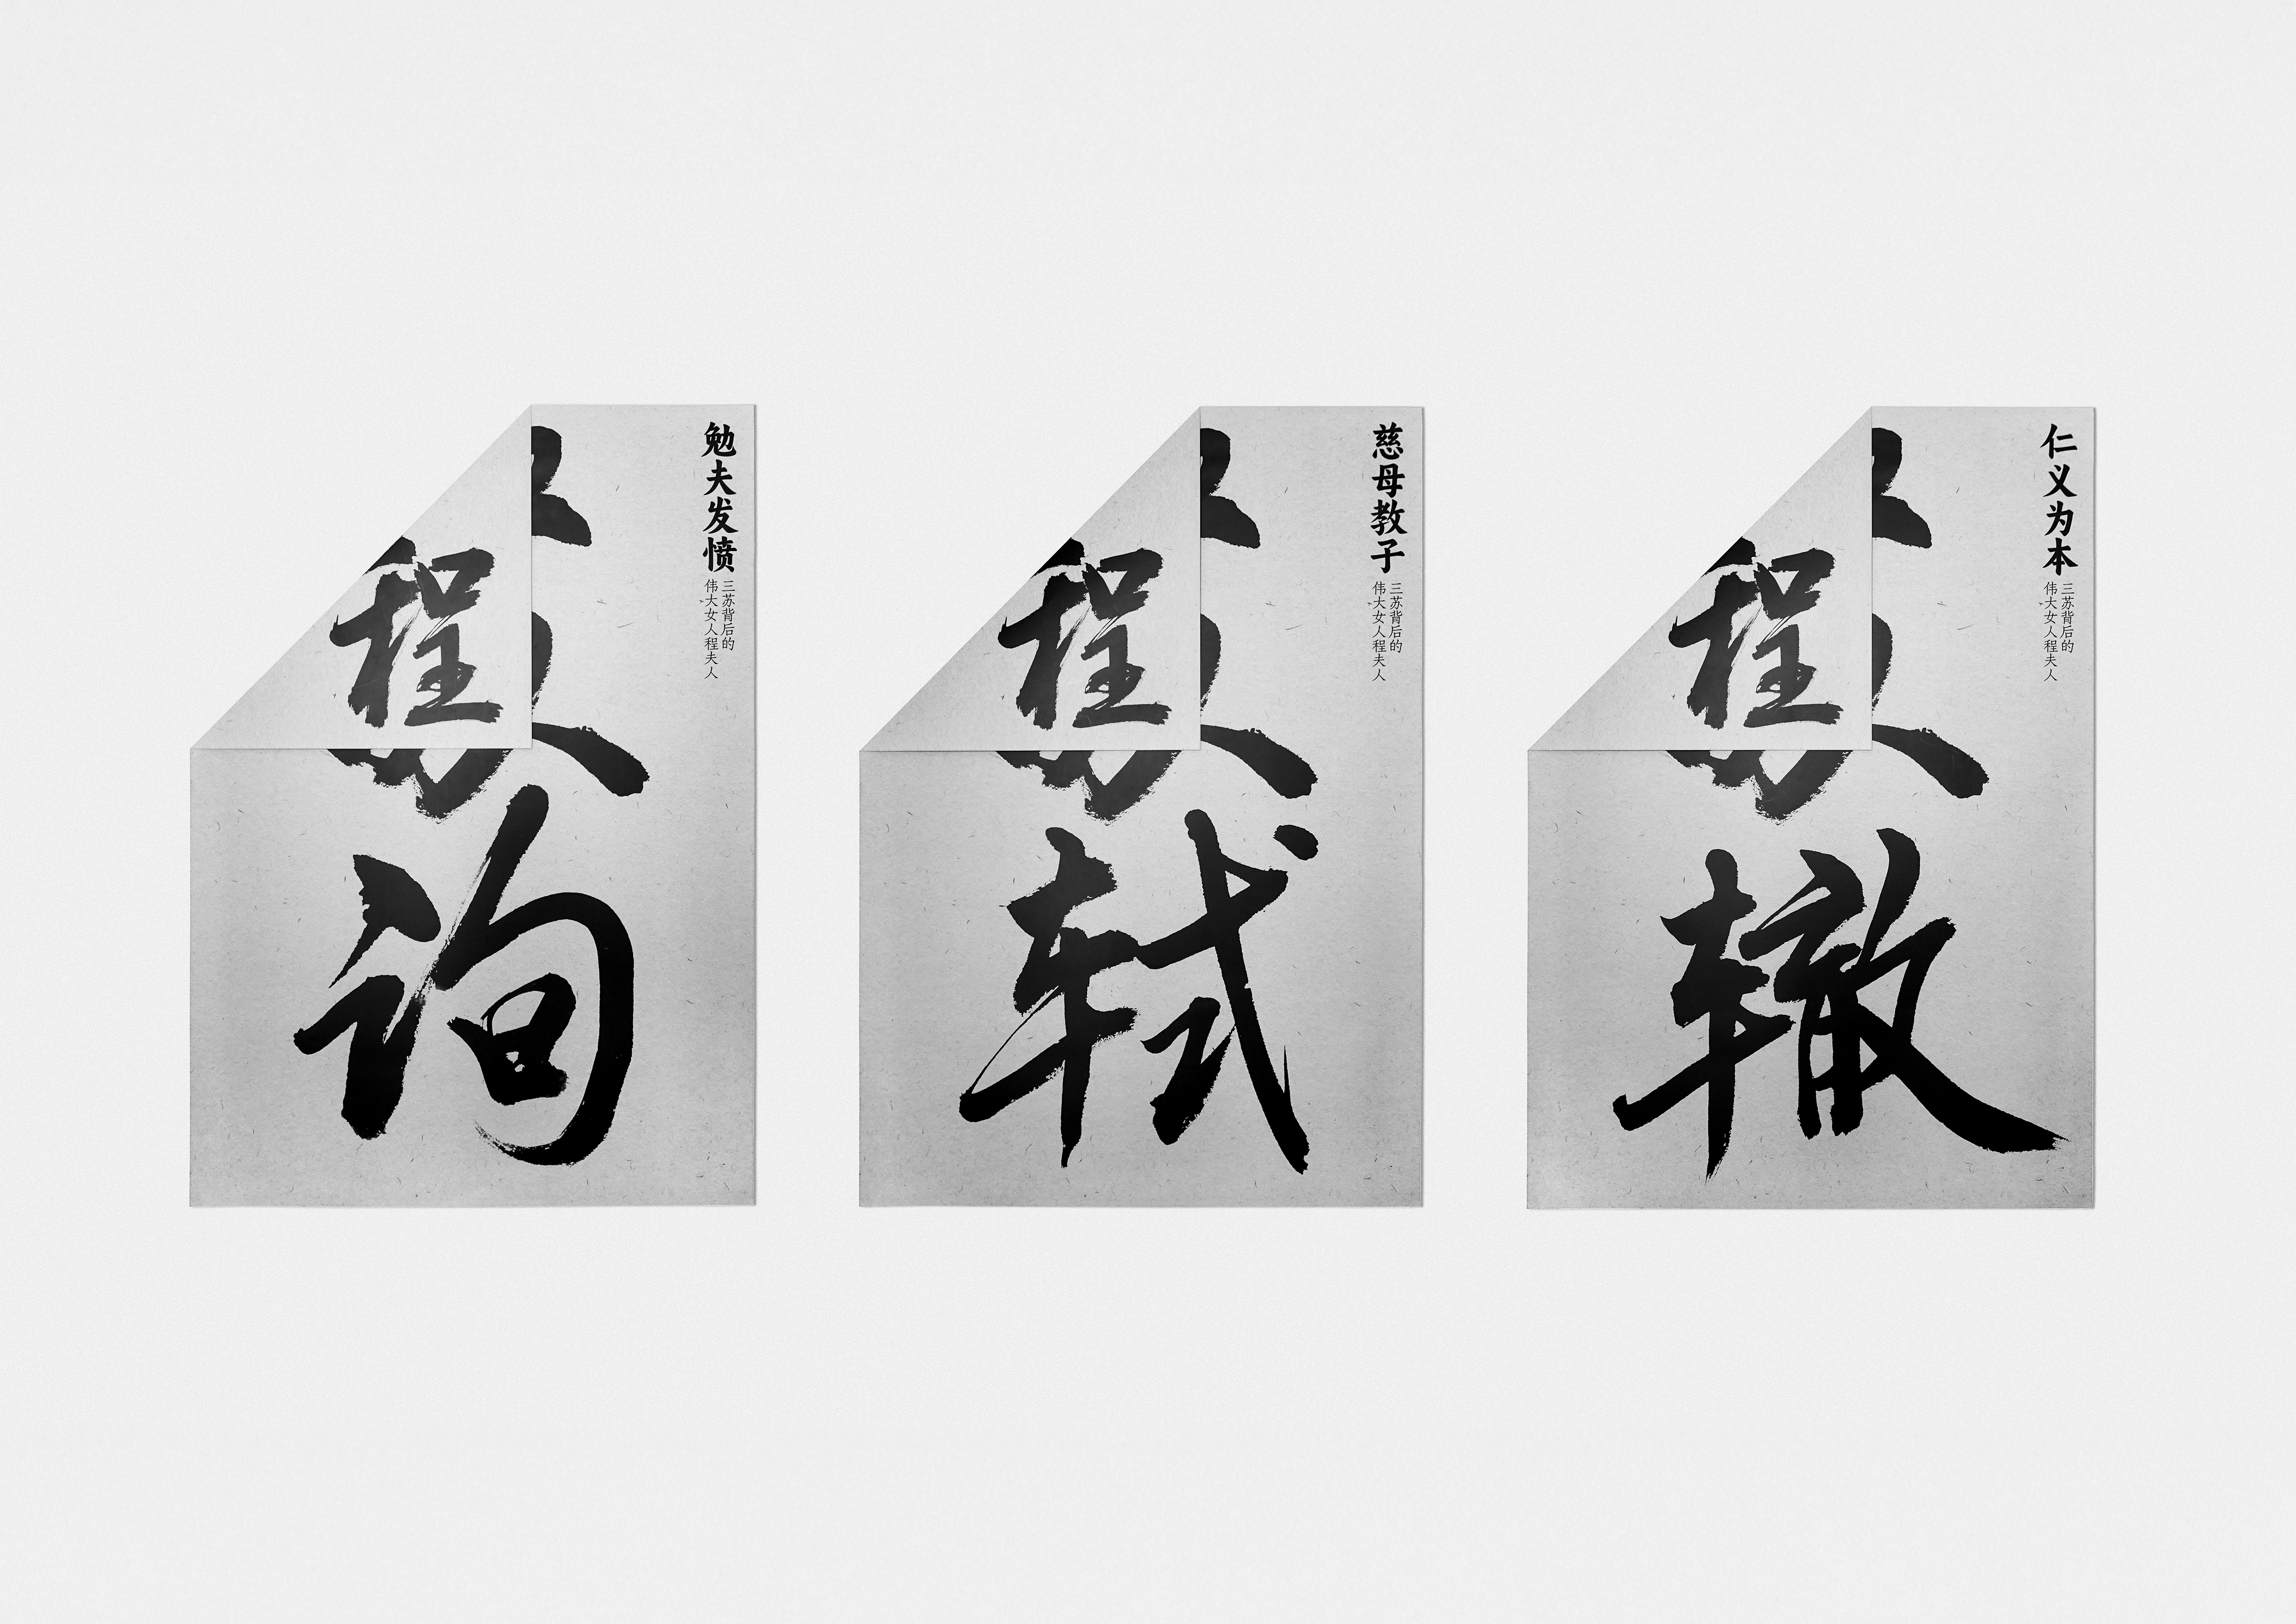 勉夫发愤
三苏背后的
伟大女人程夫人
程
询
慈母教子
三苏背后的
伟大女人程夫人
程
轼
仁义为本
三苏背后的
伟大女人程夫人
程
辙